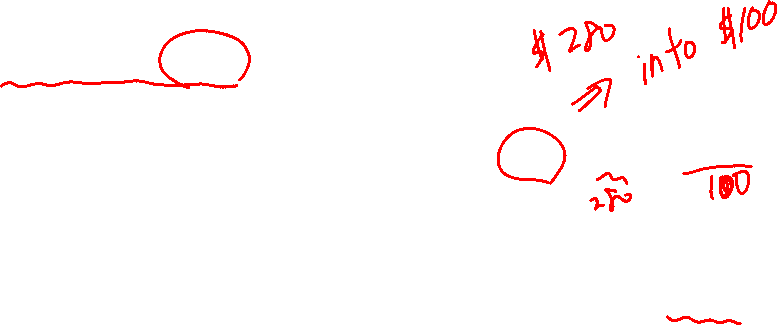 $280
⇒ into $100
280
100